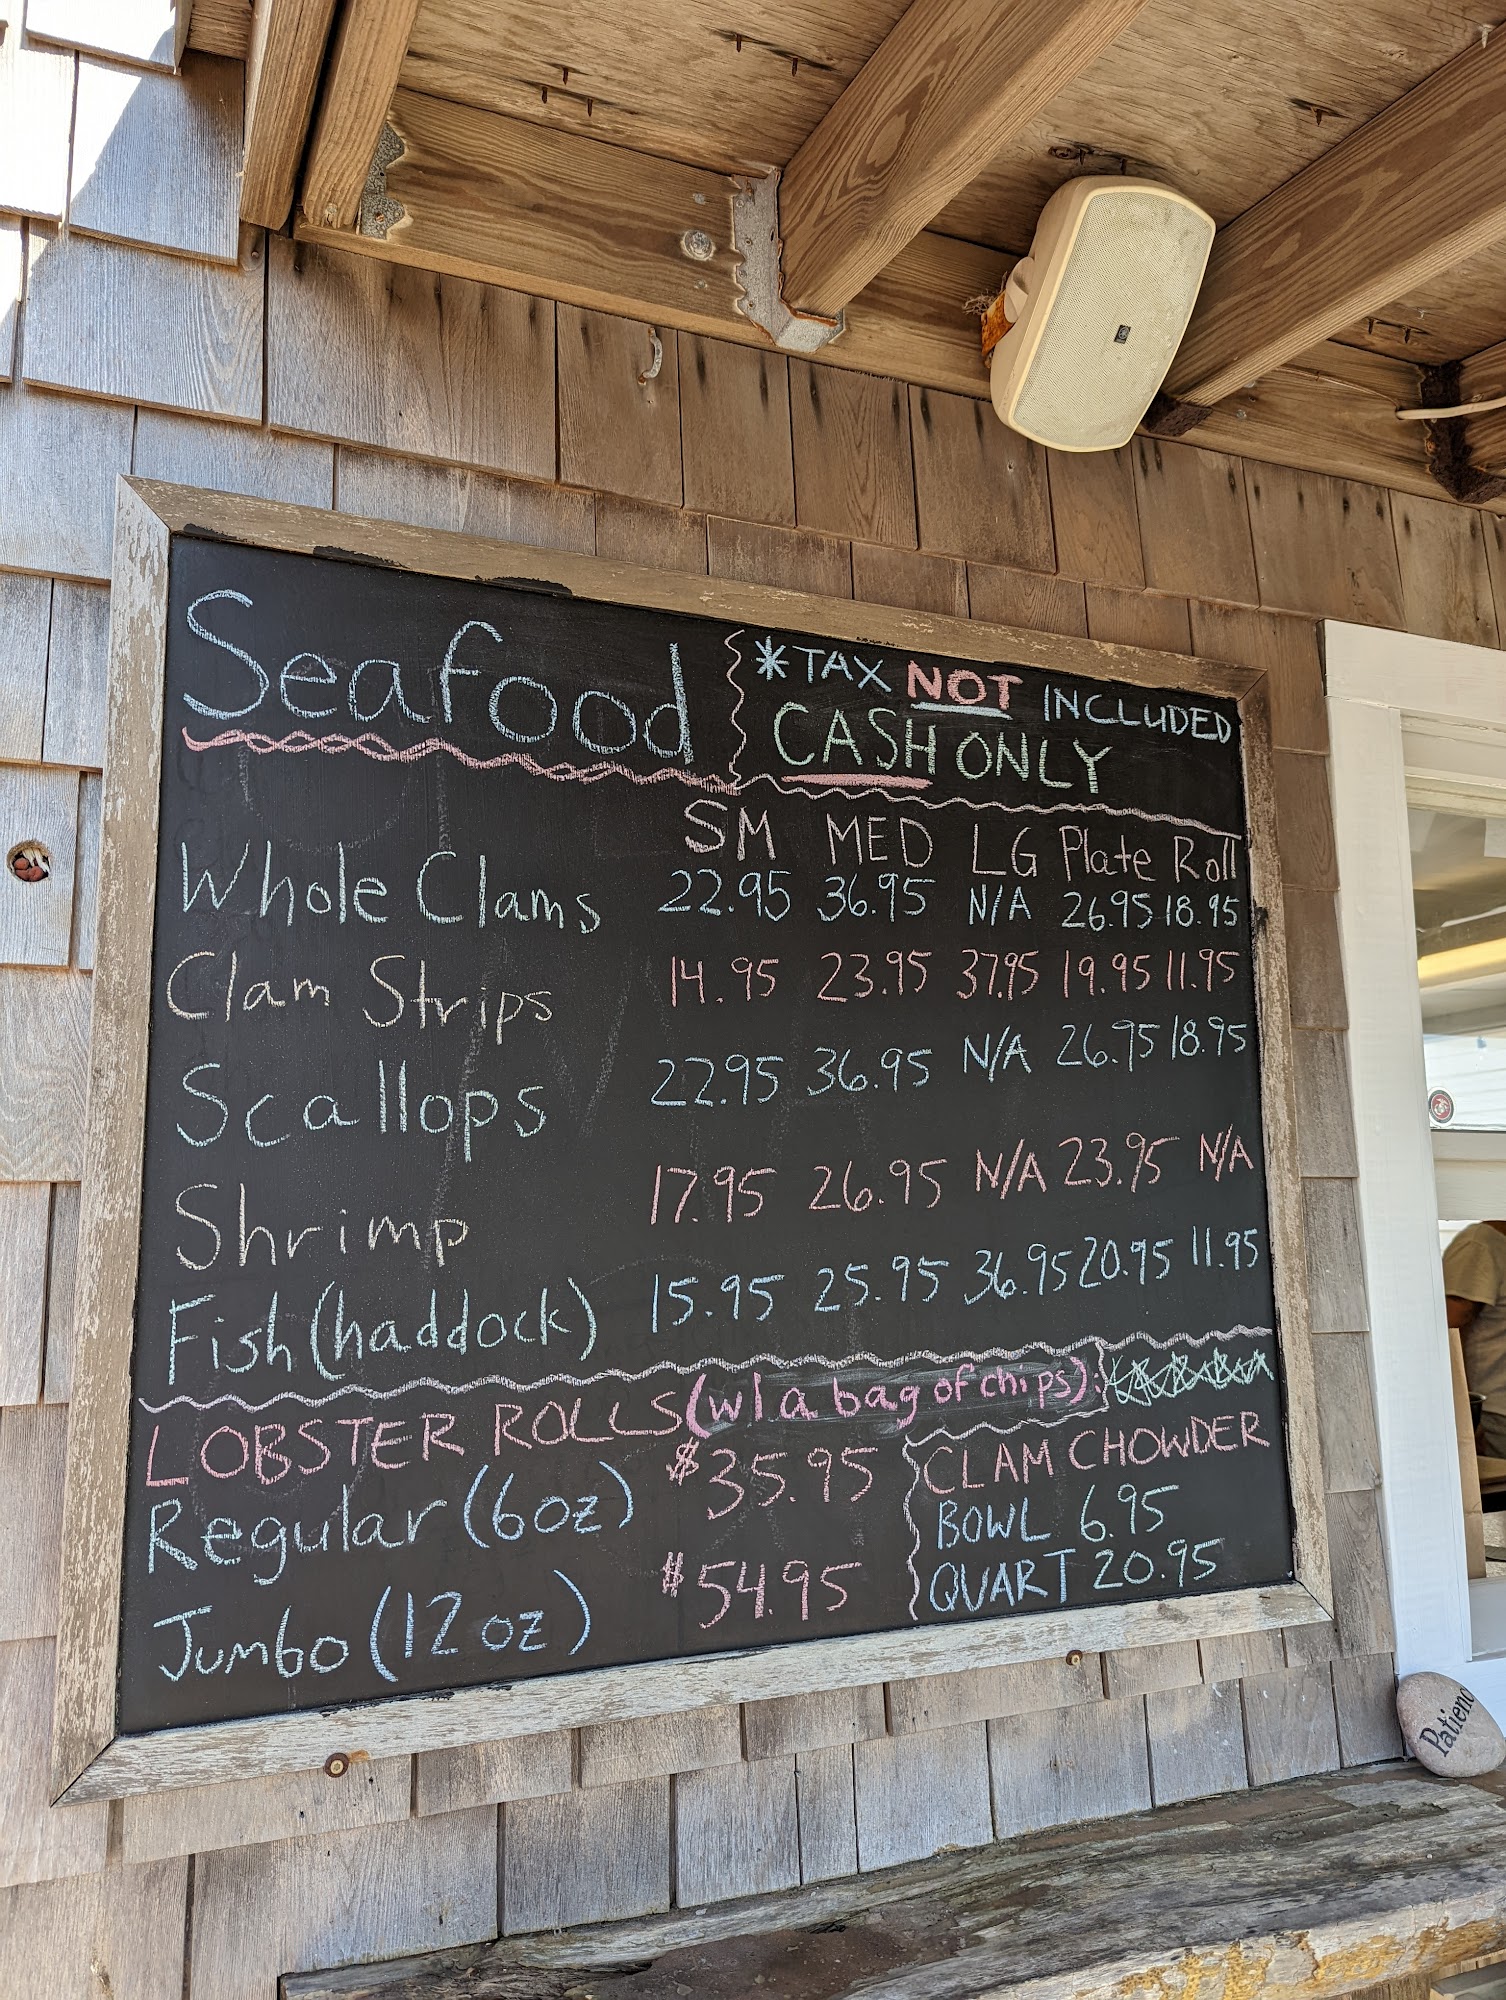 Seafood
*TAX NOT INCLUDED
CASH ONLY
SM MED LG Plate Roll
Whole Clams 22.95 36.95 N/A 26.95 18.95
Clam Strips 14.95 23.95 37.95 19.95 11.95
Scallops 22.95 36.95 N/A 26.95 18.95
Shrimp 17.95 26.95 N/A 23.95 N/A
Fish (haddock) 15.95 25.95 36.95 20.95 11.95
LOBSTER ROLLS (w/ a bag of chips):
Regular (6oz) $35.95
Jumbo (12oz) $54.95
CLAM CHOWDER
BOWL 6.95
QUART 20.95
Patienc